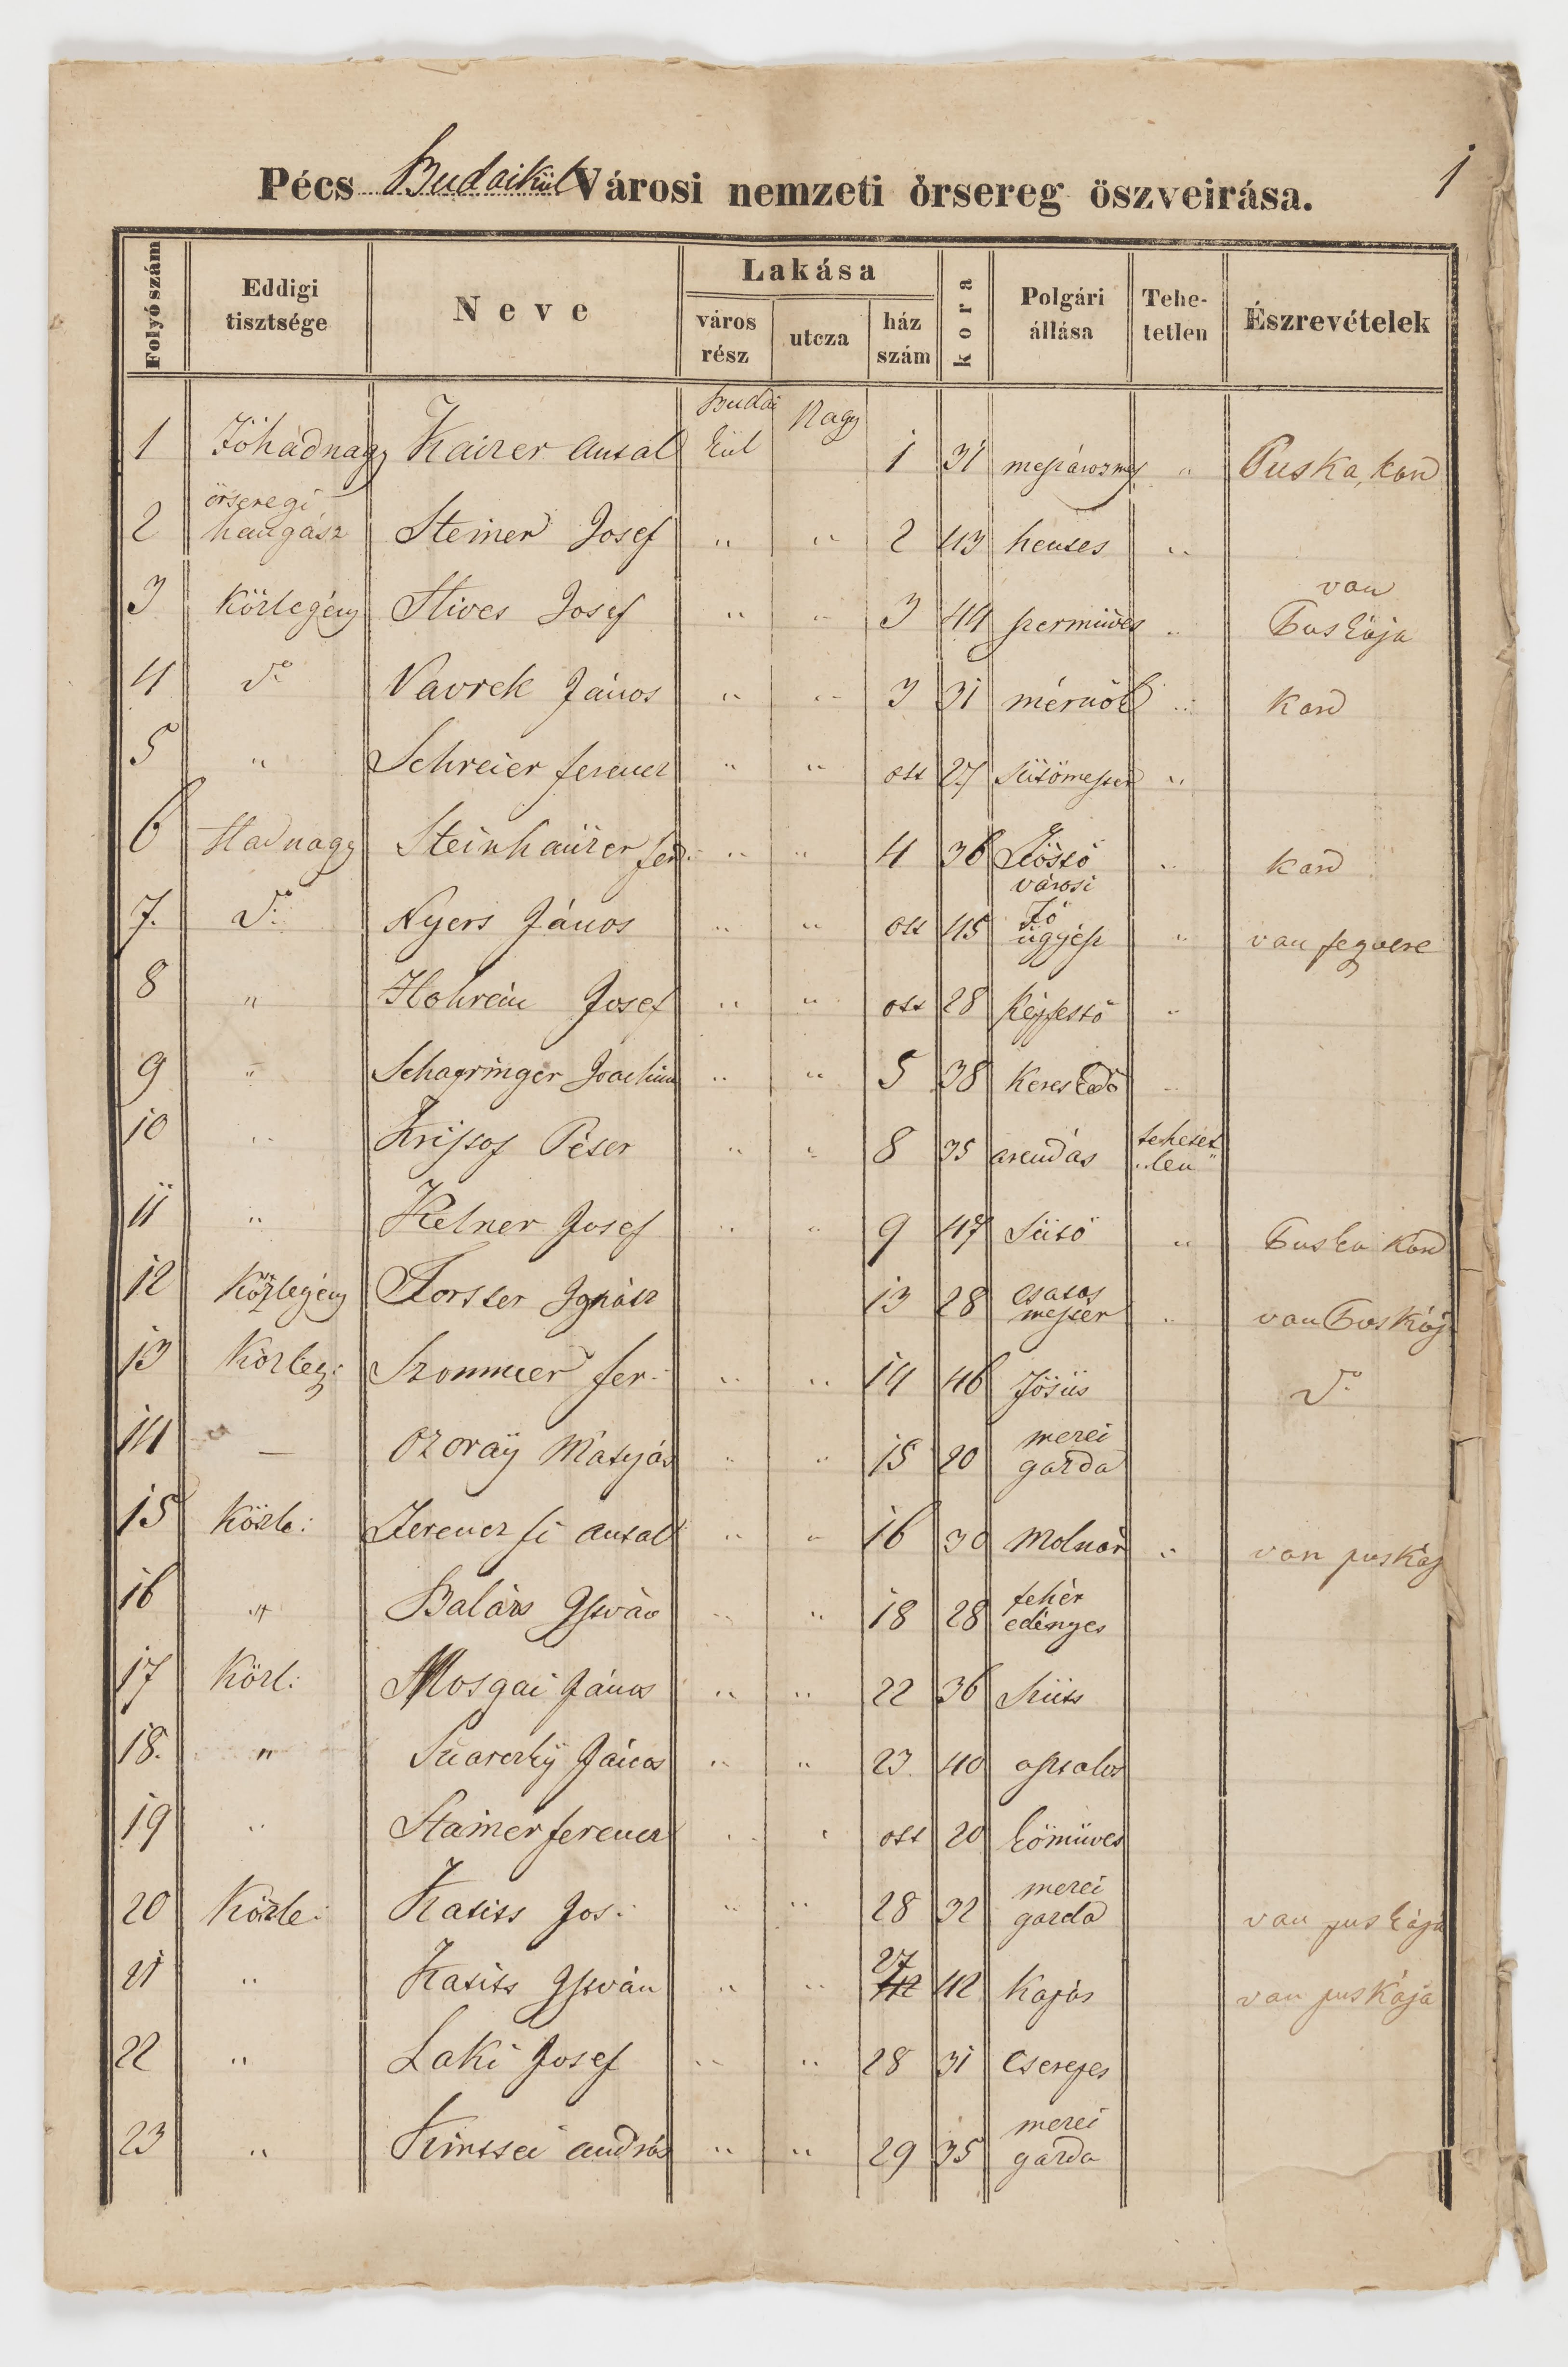 Pécs Budaikül Városi nemzeti őrsereg öszveirása. 1
Folyószám Eddigi tisztsége Neve Lakása város rész utcza ház szám kora Polgári állása Tehe-tetlen Észrevételek
1 Főhadnagy Kaizer Antal Budai kül Nagy 1 31 mészáros " Puska, kard
2 őrseregi hangász Steiner Josef " " 2 43 hentes "
3 Közlegény Stives Josef " " 3 44 szermüves " van Puskája
4 do Vavrek János " " 3 31 mérnök " Kard
5 " Schreier ferencz " " ott 27 Sütömester "
6 Hadnagy Steinhaüzer fer: " " 4 36 " kard
7. do Nyers János " " ott 45 városi fő ügyész " van fegvere
8 " Hohrein Josef " " ott 28 képfestő "
9 " Schapringer Joachim " " 5 38 Kereskedő "
10 " Krissof Péter " " 8 35 arendás tehetet "len"
11 " Kelner Josef " " 9 47 Sütő " Puska Kard
12 Közlegény Forster Ignátz 13 28 csatos mester " van Puskáj
13 Közleg: Szommer fer: " " 14 46 Fösüs do
14 — Ozoraÿ Mátyás " " 15 20 mezei gazda
15 Közle: Ferencz fi Antal " " 16 30 Molnár " van puskáj
16 " Balázs Istvàn " " 18 28 fehér edényes
17 Közl: Mosgai János " " 22 36 Szüts
18. " János " " 23 40 asztalos
19 " Stainer ferencz " " ott 20 kőmüves
20 Közle: Katits Jos: " " 28 32 mezei gazda van puskája
21 " Katits István " " 27 42 Kapás van puskája
22 " Laki Josef " " 28 31 Cserepes
23 " Kintsei András " " 29 35 mezei gazda